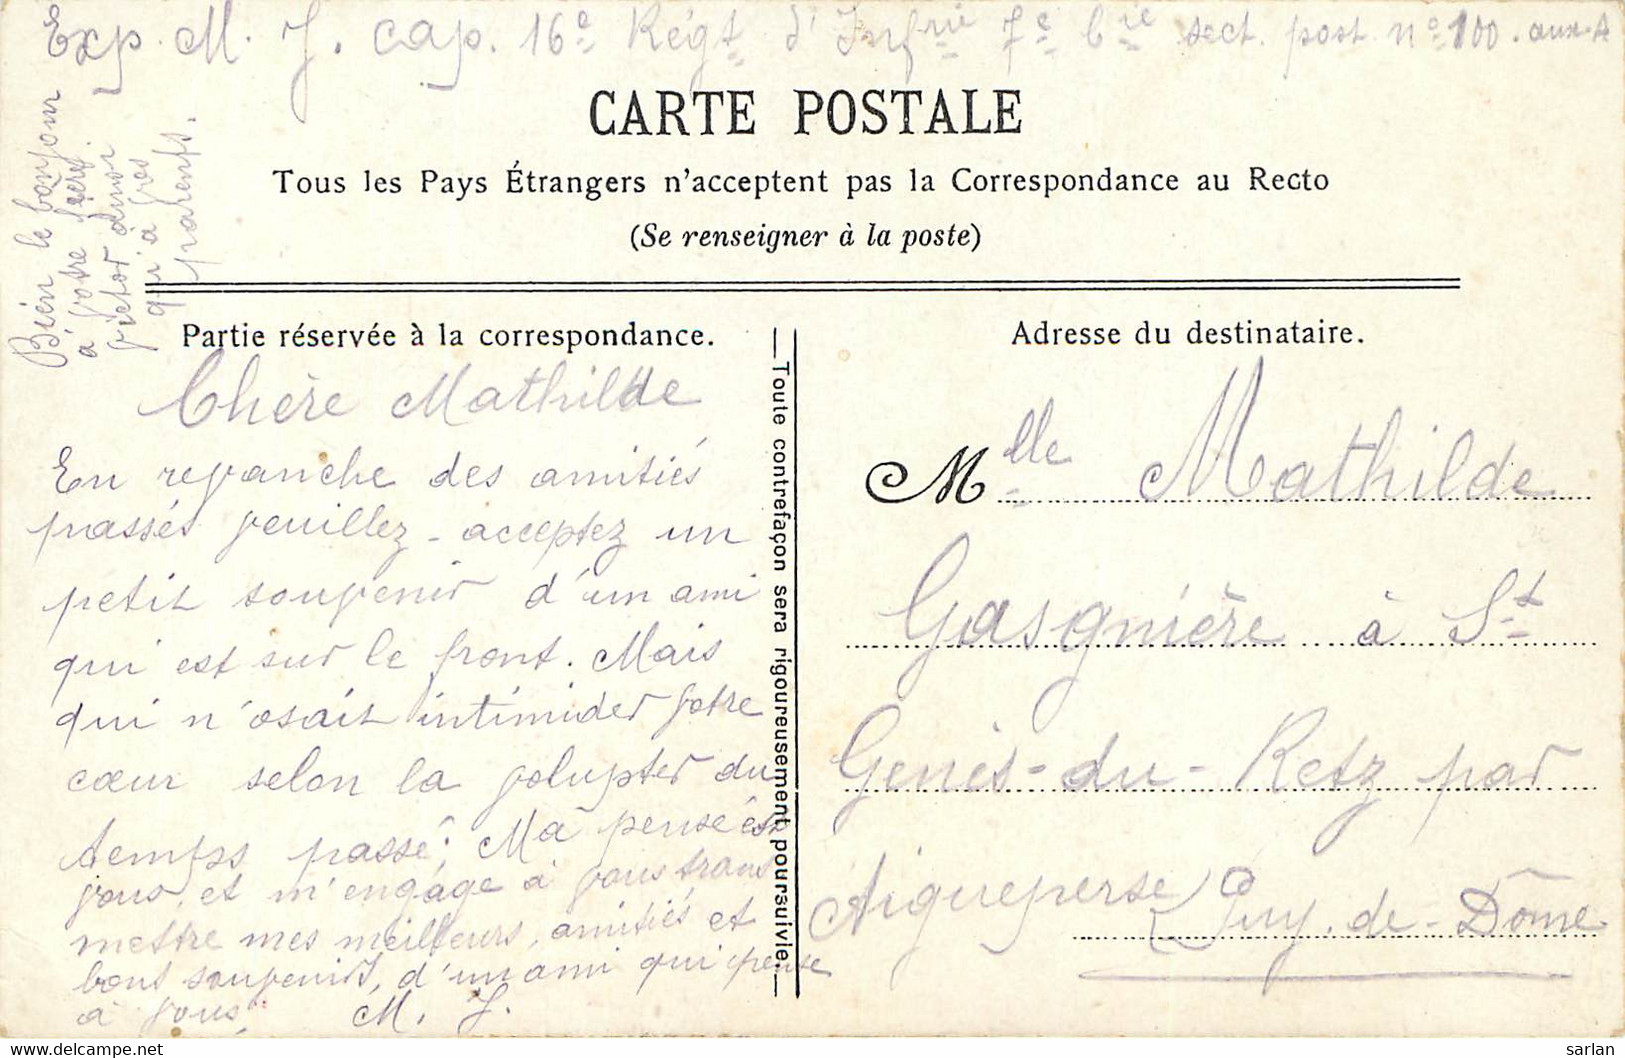 Exp. M. J. cap. 16e Régt d'Infrie 7e Cie sect. post. n° 100. aux-A
CARTE POSTALE
Tous les Pays Étrangers n'acceptent pas la Correspondance au Recto
(Se renseigner à la poste)
Bien le bonjour
à votre frère
victor
qui à vos
parents.
Partie réservée à la correspondance.
Chère Mathilde
En revanche des amitiés
passés veuillez - acceptez un
petit souvenir d'un ami
qui est sur le front. Mais
qui n'osait intimider votre
cœur selon la volupter du
temps passé; Ma pensé est
vous, et m'engage à vous trans
mettre mes meilleurs, amitiés et
bons souvenirs, d'un ami qui pense
à vous
M. J.
Toute contrefaçon sera rigoureusement poursuivie.
Adresse du destinataire.
Mlle Mathilde
Gasgnière à St
Genès-du-Retz par
Aigueperse Puy-de-Dôme
sarlan